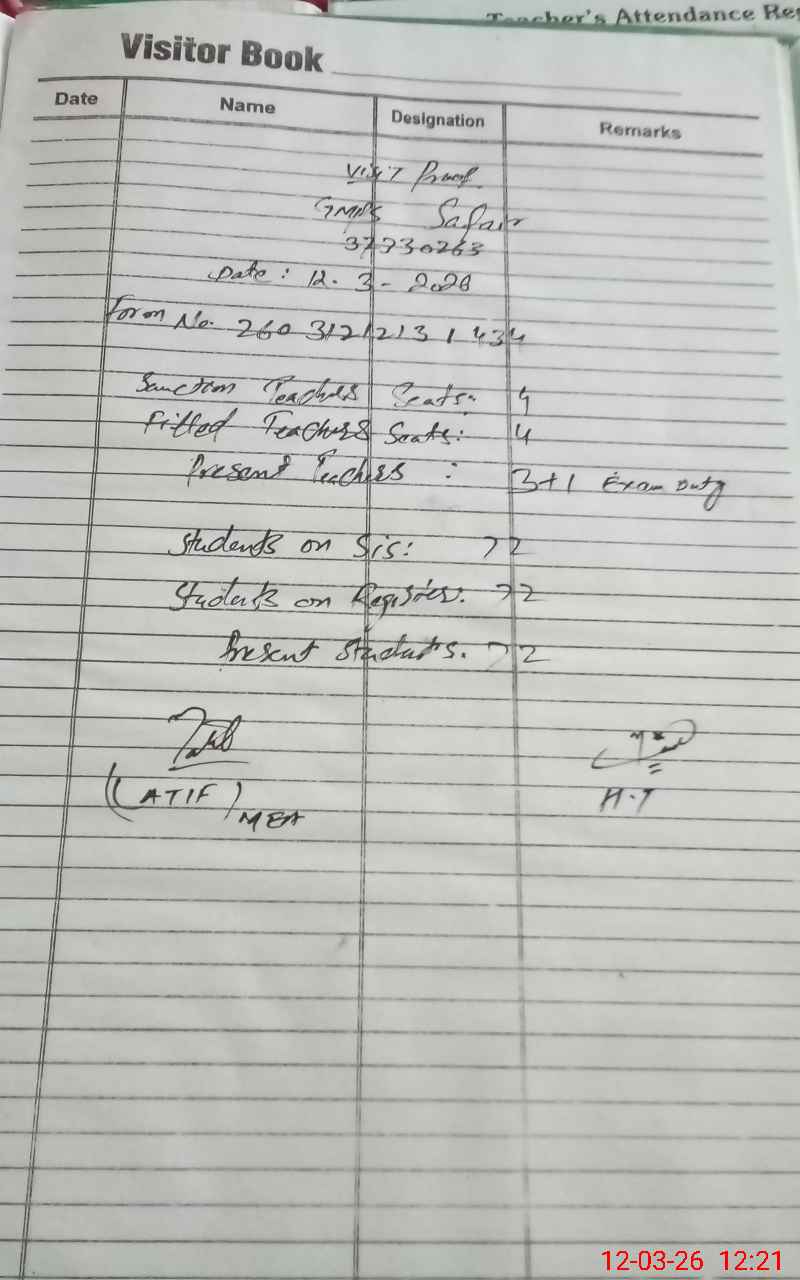 Teacher's Attendance Reg
Visitor Book
Date Name Designation Remarks
Visit Proof
GMPS Safair
37330263
Date: 12-3-2026
Form No. 260 312121 31434
Sanction Teachers Seats: 4
Filled Teachers Seats: 4
Present Teachers : 3+1 Exam Duty
Students on Sis: 72
Students on Register: 72
Present Students. 72
(ATIF) MEA
H.T
12-03-26 12:21